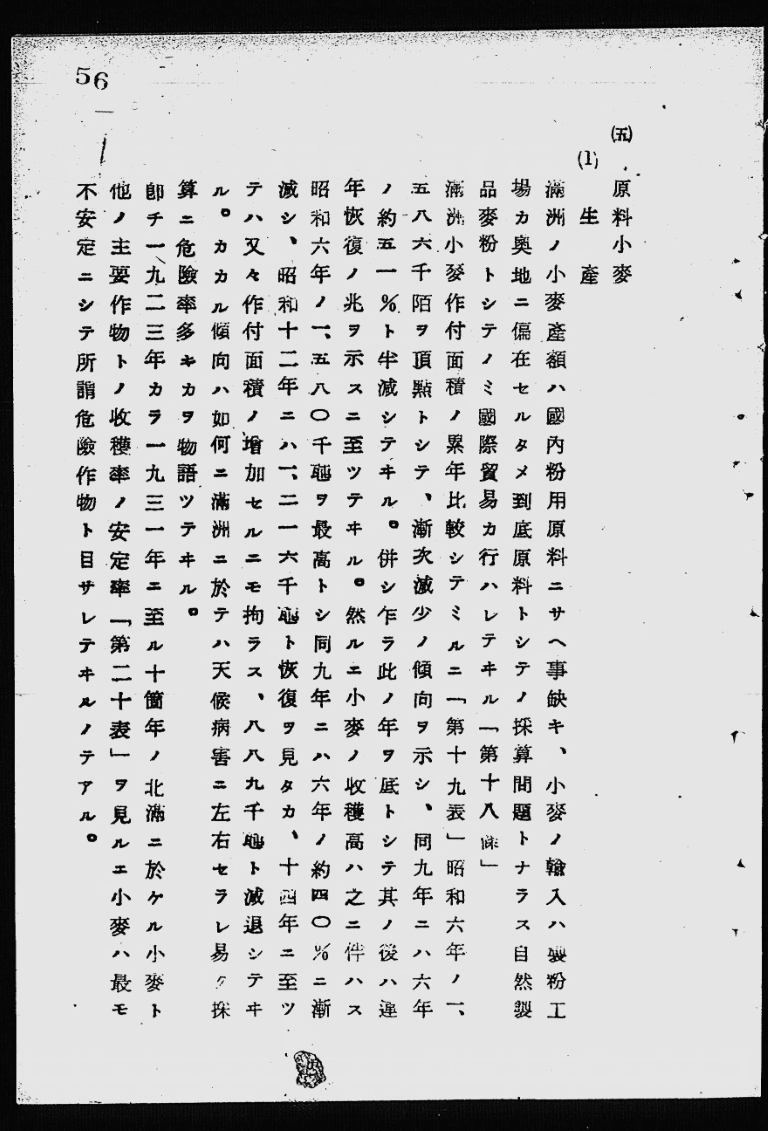 56
㈤ 原料小麥
(1) 生產
滿洲ノ小麥產額ハ國內粉用原料ニサヘ事缺キ、小麥ノ輸入ハ製粉工
場カ奧地ニ偏在セルタメ到底原料トシテノ採算問題トナラス自然製
品麥粉トシテノミ國際貿易カ行ハレテヰル「第十八」
滿洲小麥作付面積ノ累年比較シテミルニ「第十九表」昭和六年ノ一、
五八六千陌ヲ頂點トシテ、漸次減少ノ傾向ヲ示シ、同九年ニハ六年
ノ約五一％ト半減シテヰル。併シ乍ラ此ノ年ヲ底トシテ其ノ後ハ逐
年恢復ノ兆ヲ示スニ至ツテヰル。然ルニ小麥ノ收穫高ハ之ニ伴ハス
昭和六年ノ一、五八〇千瓲ヲ最高トシ同九年ニハ六年ノ約四〇％ニ漸
減シ、昭和十二年ニハ一、二一六千瓲ト恢復ヲ見タカ、十四年ニ至ツ
テハ又々作付面積ノ增加セルニモ拘ラス、八八九千瓲ト減退シテヰ
ル。カカル傾向ハ如何ニ滿洲ニ於テハ天候病害ニ左右セラレ易ク採
算ニ危險率多キカヲ物語ツテヰル。
卽チ一九二三年カラ一九三一年ニ至ル十箇年ノ北滿ニ於ケル小麥ト
他ノ主要作物トノ收穫率ノ安定率「第二十表」ヲ見ルニ小麥ハ最モ
不安定ニシテ所謂危險作物ト目サレテヰルノテアル。